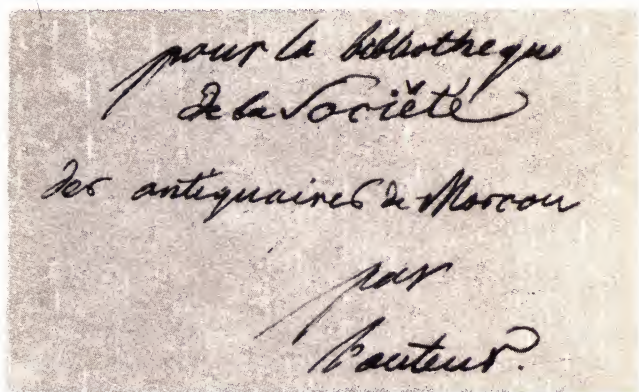 pour la bibliotheque
de la Société
des antiquaires de Moscou
par
l'auteur.